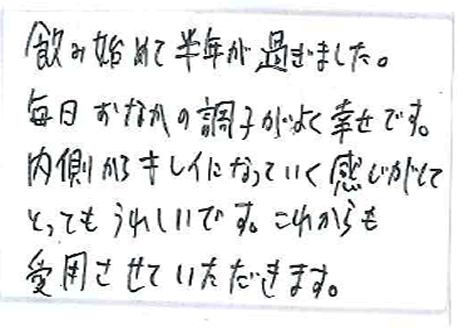 飲み始めて半年が過ぎました。
毎日おなかの調子がよく幸せです。
内側からキレイになっていく感じがして
とってもうれしいです。これからも
愛用させていただきます。